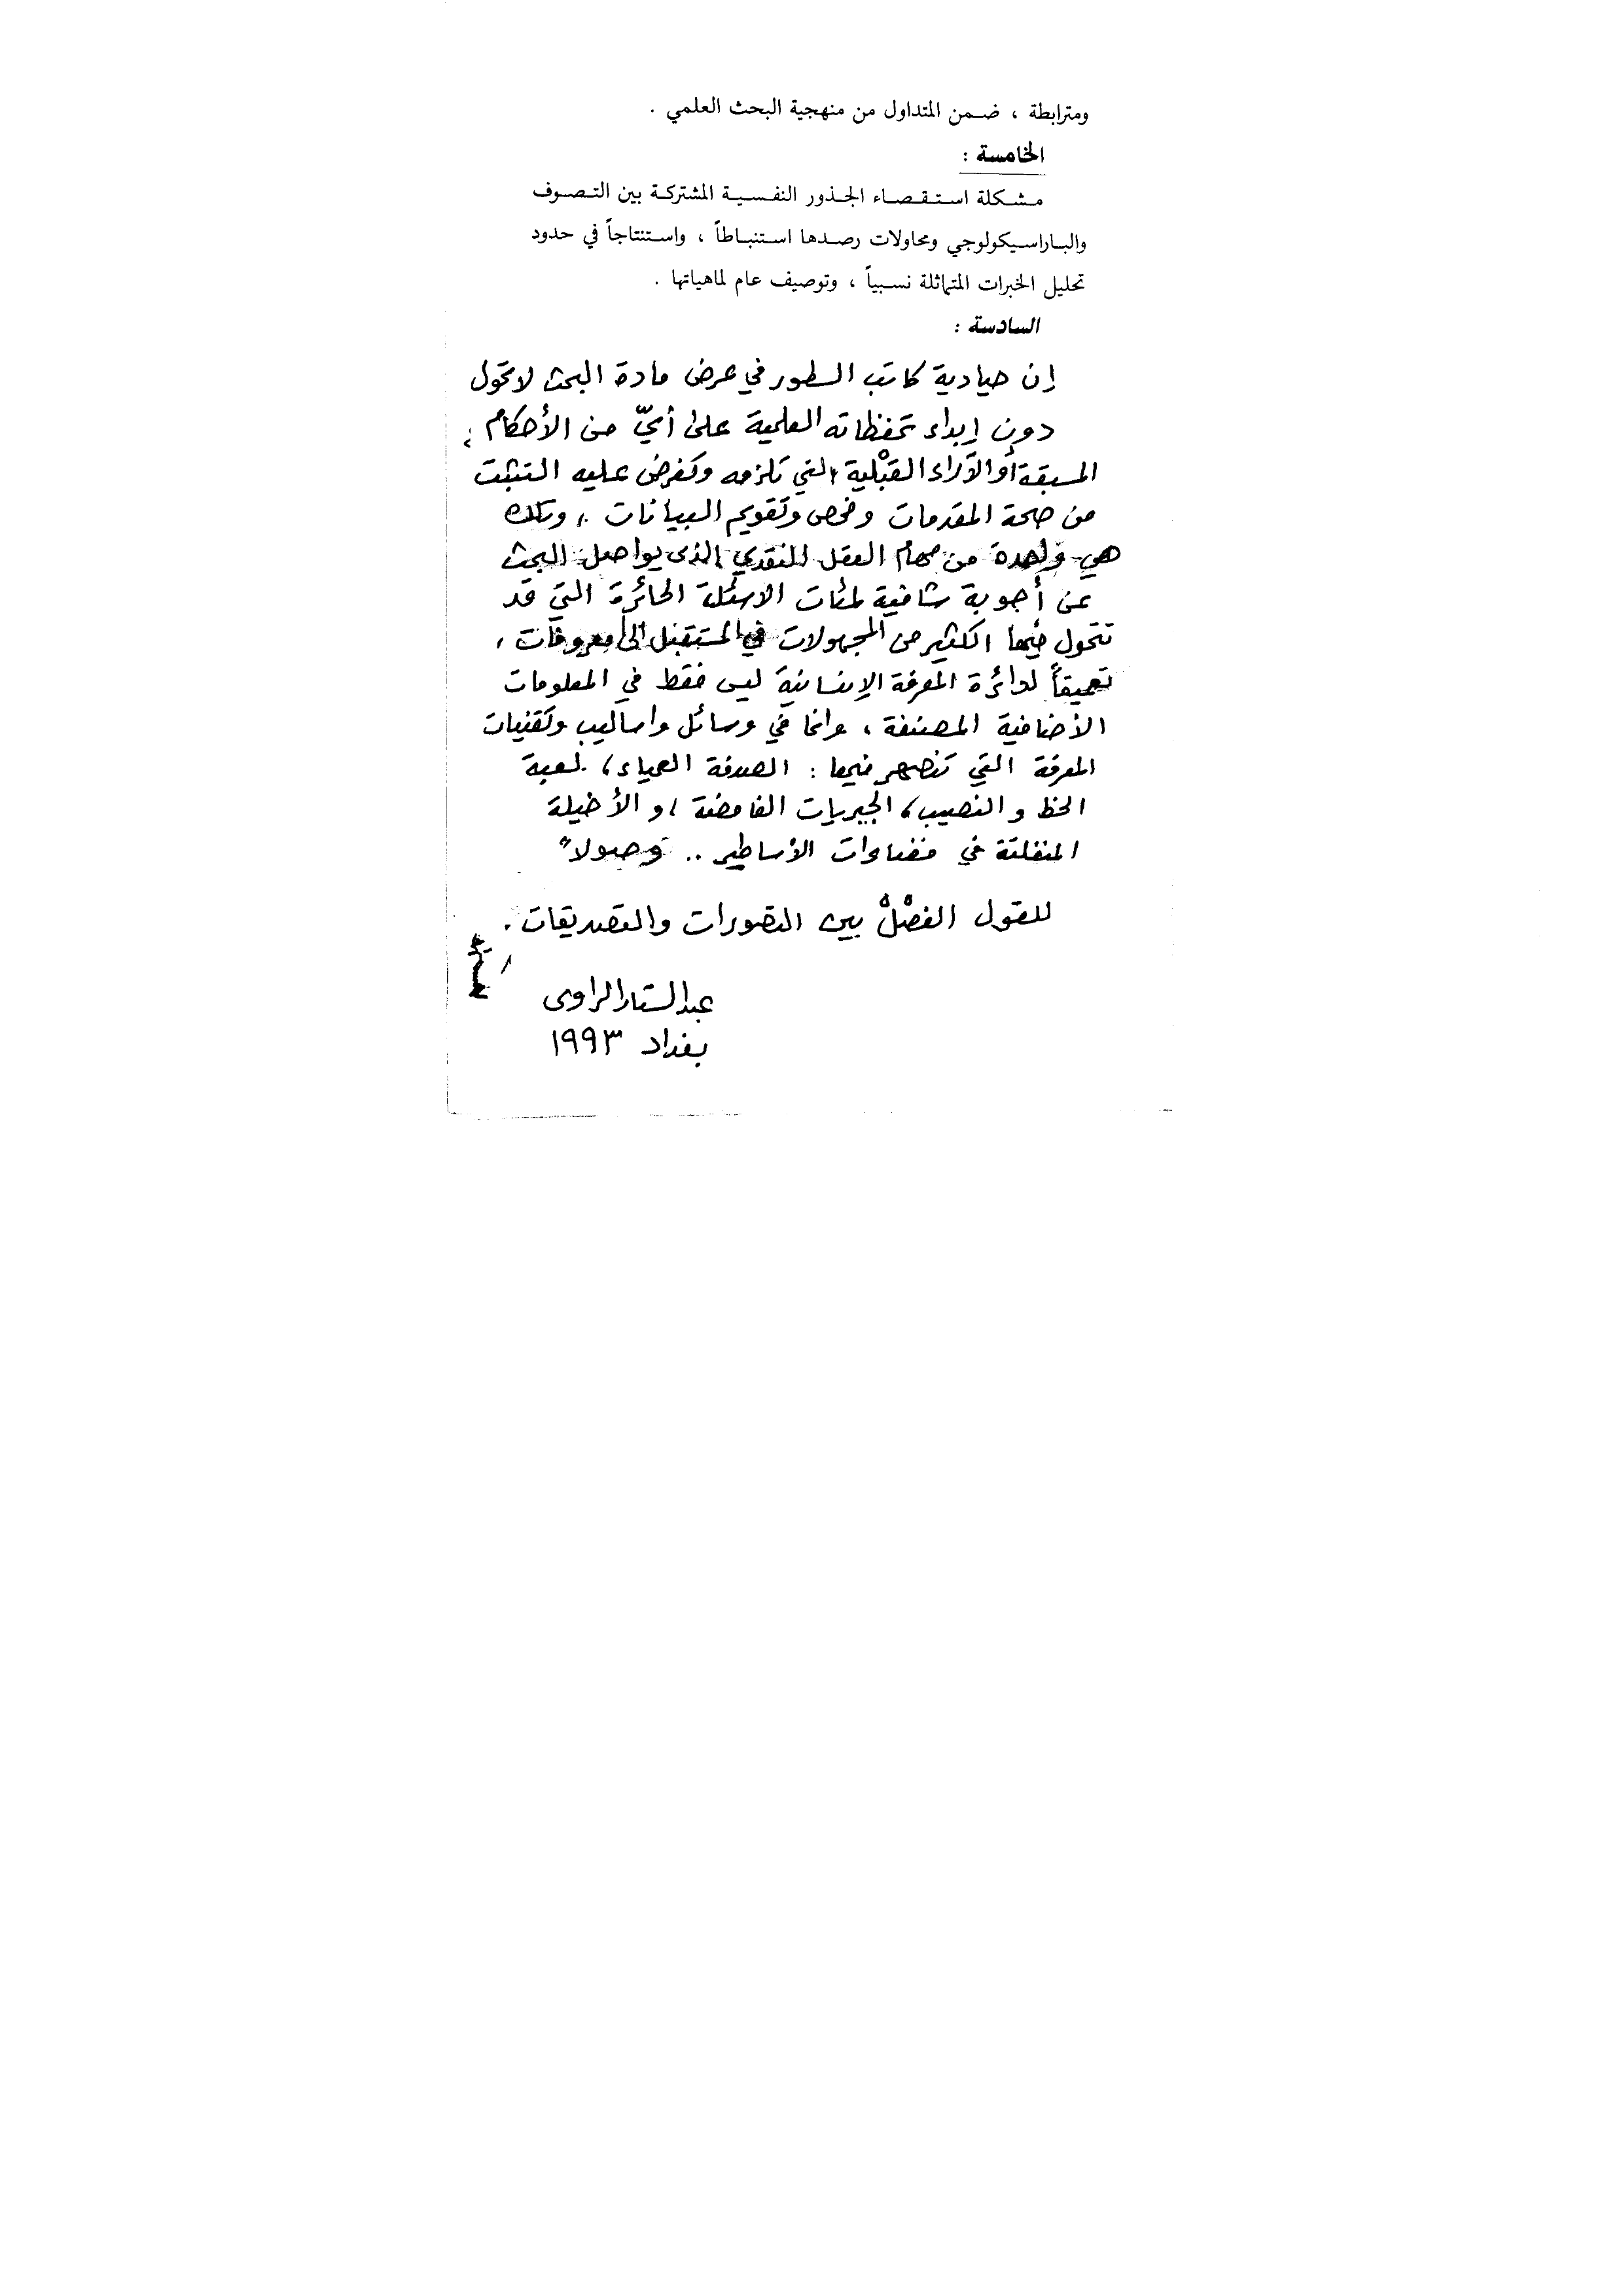 ومترابطة ، ضمن المتداول من منهجية البحث العلمي .
الخامسة :
مشكلة استقصاء الجذور النفسية المشتركة بين التصوف
والباراسيكولوجي ومحاولات رصدها استنباطاً ، واستنتاجاً في حدود
تحليل الخبرات المتماثلة نسبياً ، وتوصيف عام لماهياتها .
السادسة :
إن حيادية كاتب السطور في عرض مادة البحث لا تحول
دون إبداء تحفظاته العلمية على أيّ من الأحكام
المسبقة أو الآراء القبْلية، التي تلزمه وتفرض عليه التثبت
من صحة المقدمات وفحص وتقويم البيانات ، وتلك
هي واحدة من مهام العقل النقدي الذي يواصل البحث
عن أجوبة شافية لمئات الاسئلة الحائرة التي قد
تتحول فيها الكثير من المجهولات في المستقبل الى معروفات ،
تعميقاً لدائرة المعرفة الإنسانية ليس فقط في المعلومات
الأضافية المصنفة ، وانما في وسائل واساليب وتقنيات
المعرفة التي تنصهر فيها : الصدفة العمياء ، لعبة
الحظ و النصيب ، الجبريات الغامضة ، و الأخيلة
المنفلتة في فضاءات الأساطير .. وصولاً
للقول الفصْلْ بين التصورات والتصديقات .
عبد الستار الراوي
بغداد ١٩٩٣